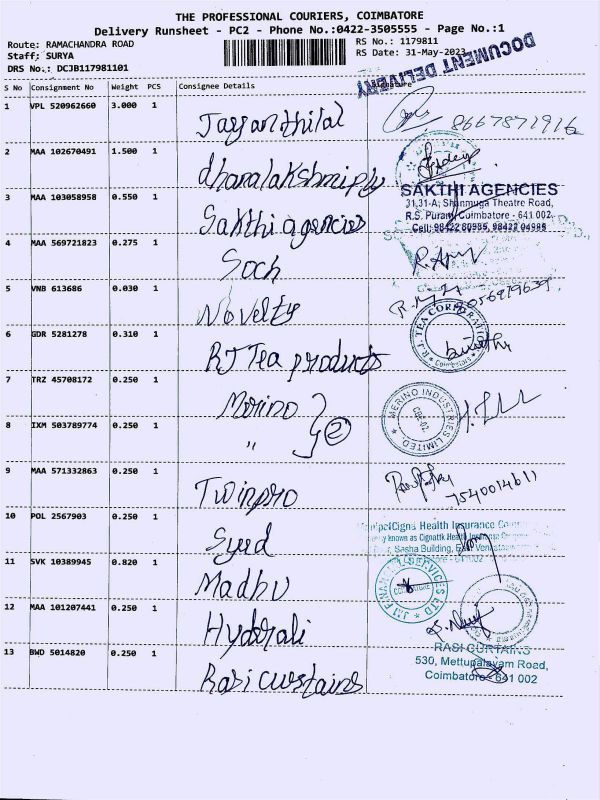 THE PROFESSIONAL COURIERS, COIMBATORE
Delivery Runsheet - PC2 - Phone No.:0422-3505555 - Page No.:1
Route: RAMACHANDRA ROAD RS No.: 1179811
Staff: SURYA RS Date: 31-May-2023
DRS No.: DCJB117981101
DOCUMENT DELIVERY
S No Consignment No Weight PCS Consignee Details
1 VPL 520962660 3.000 1 Jayanthilal 8667871916
2 MAA 102670491 1.500 1 dhanalakshmiply
3 MAA 103058958 0.550 1 Sakthi agencies
SAKTHI AGENCIES
31,31-A, Shanmuga Theatre Road,
R.S. Puram, Coimbatore - 641 002.
Cell: 98422 80935, 98422 04995
4 MAA 569721823 0.275 1 Soch
5 VNB 613686 0.030 1 Novelty
6 GDR 5281278 0.310 1 RJ Tea products
R.J. TEA CORPORATION
Coimbatore
7 TRZ 45708172 0.250 1 Merino
MERINO INDUSTRIES LIMITED.
CBE-02.
8 IXM 503789774 0.250 1 " 2
9 MAA 571332863 0.250 1 Twinpro 7540014611
10 POL 2567903 0.250 1 Syed
Health Insurance
known as Cignattk Health
Sasha Building,
11 SVK 10389945 0.820 1 Madhu
JM FINANCIAL SERVICES LTD
COIMBATORE
12 MAA 101207441 0.250 1 Hyderali
13 BWD 5014820 0.250 1 Rasi curtains
RASI CURTAINS
530, Mettupalayam Road,
Coimbatore - 641 002